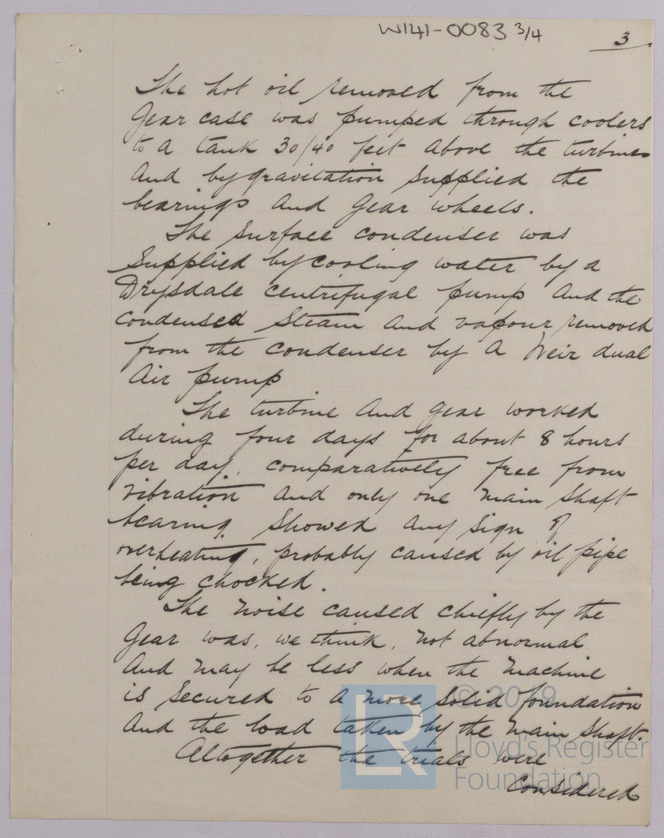 W141-0083 3/4
3
The hot oil removed from the
Gear case was pumped through coolers
to a tank 30/40 feet above the turbines
and by gravitation supplied the
bearings and gear wheels.
The surface condenser was
supplied by cooling water by a
Drysdale centrifugal pump and the
condensed steam and vapour removed
from the condenser by a Weir dual
air pump
The turbine and gear worked
during four days for about 8 hours
per day, comparatively free from
vibration and only one main shaft
bearing showed any sign of
overheating, probably caused by oil pipe
being chocked.
The noise caused chiefly by the
Gear was, we think, not abnormal
and may be less when the machine
is secured to a more solid foundation
and the load taken by the main shaft.
Altogether the trials were
considered
© 2019
LR
Lloyd's Register
Foundation